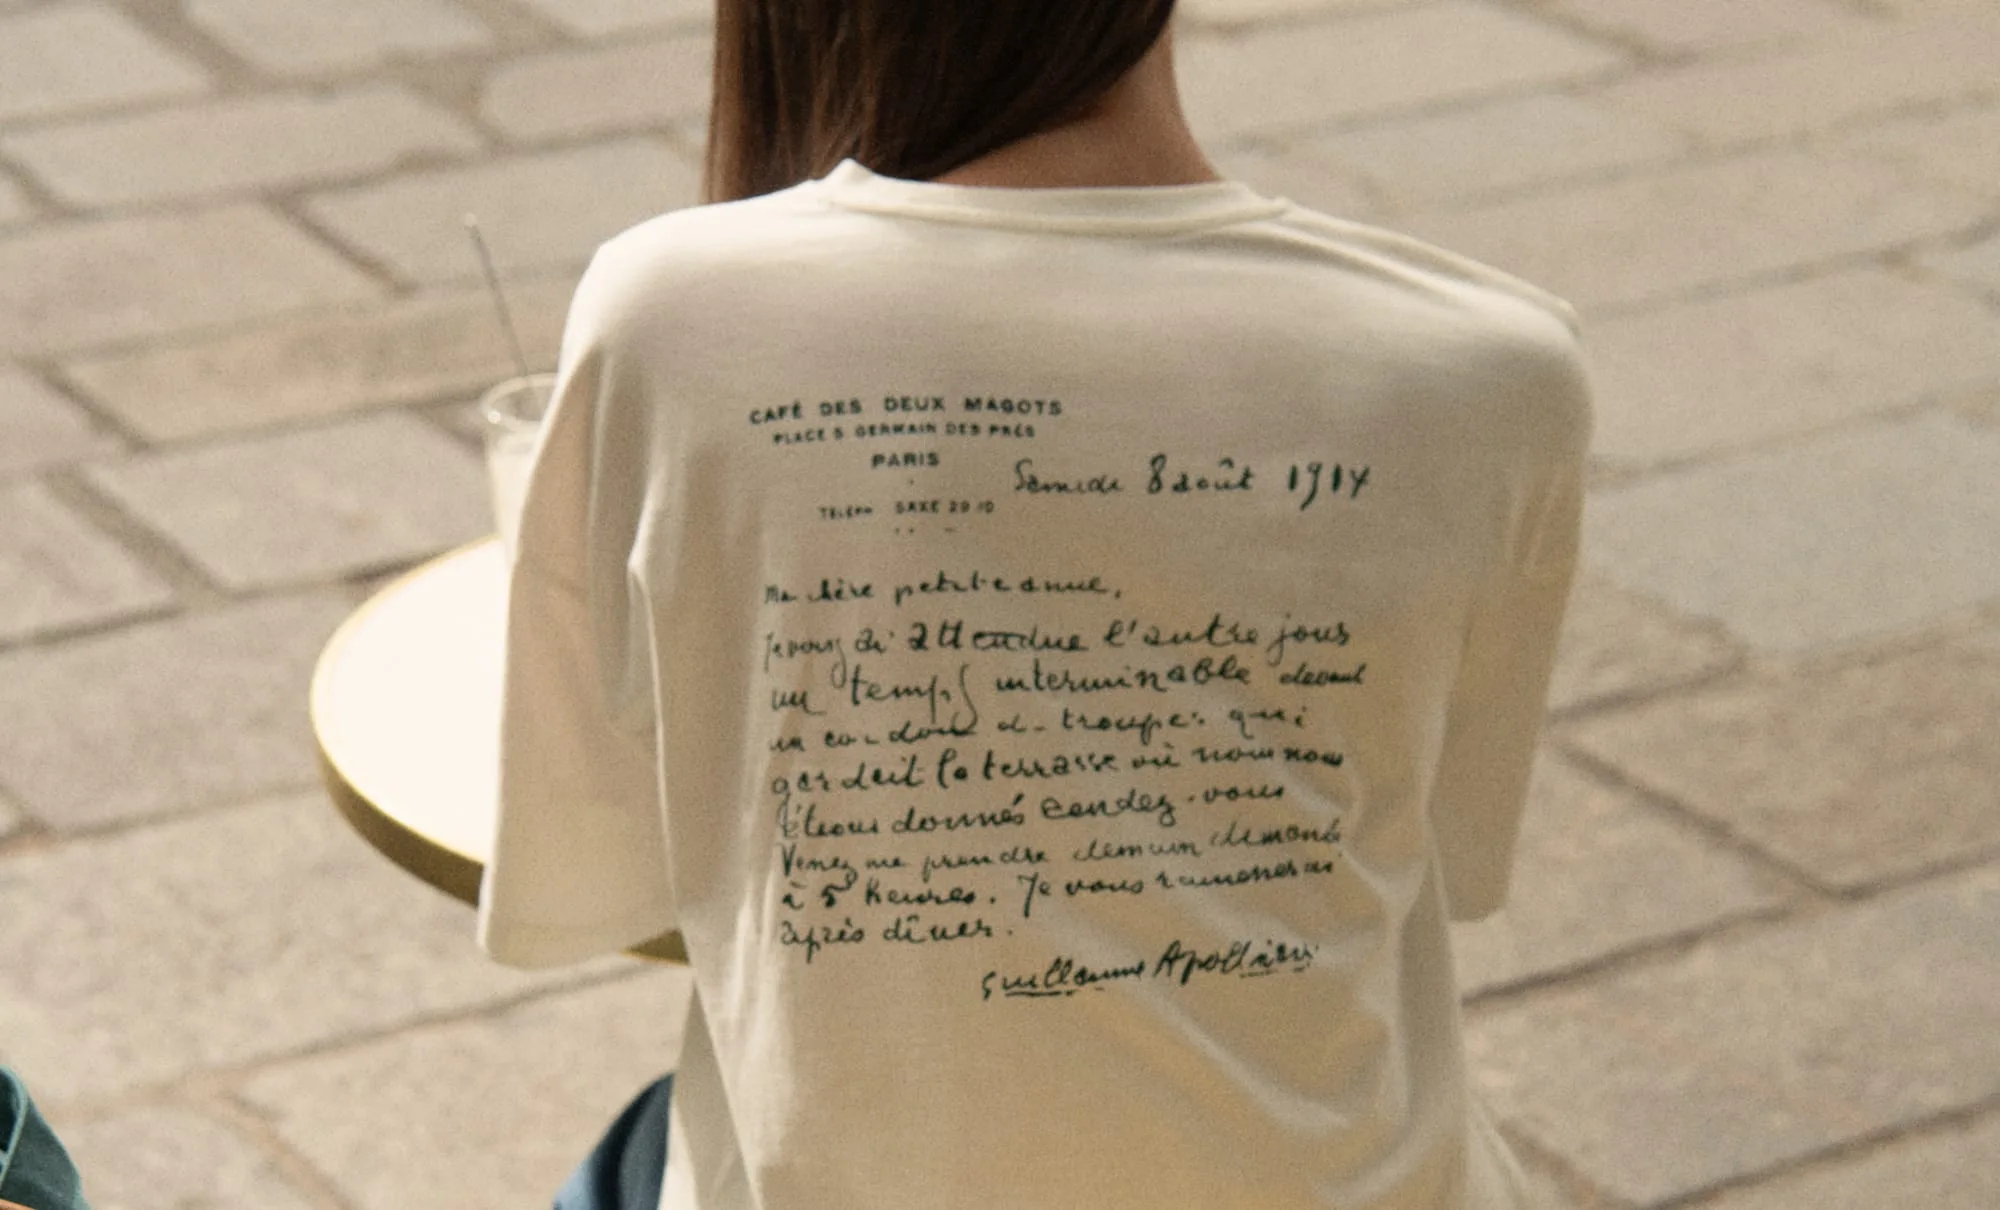 CAFÉ DES DEUX MAGOTS
PLACE S GERMAIN DES PRÉS
PARIS
TÉLÉPH SAXE 29 10
Samedi 8 août 1914
Ma chère petite amie,
Je vous ai attendue l'autre jour
un temps interminable devant
un cordon de troupes qui
gardait la terrasse où nous nous
étions donnés rendez-vous
Venez me prendre demain dimanche
à 5 heures. Je vous ramènerai
après dîner.
Guillaume Apollinaire